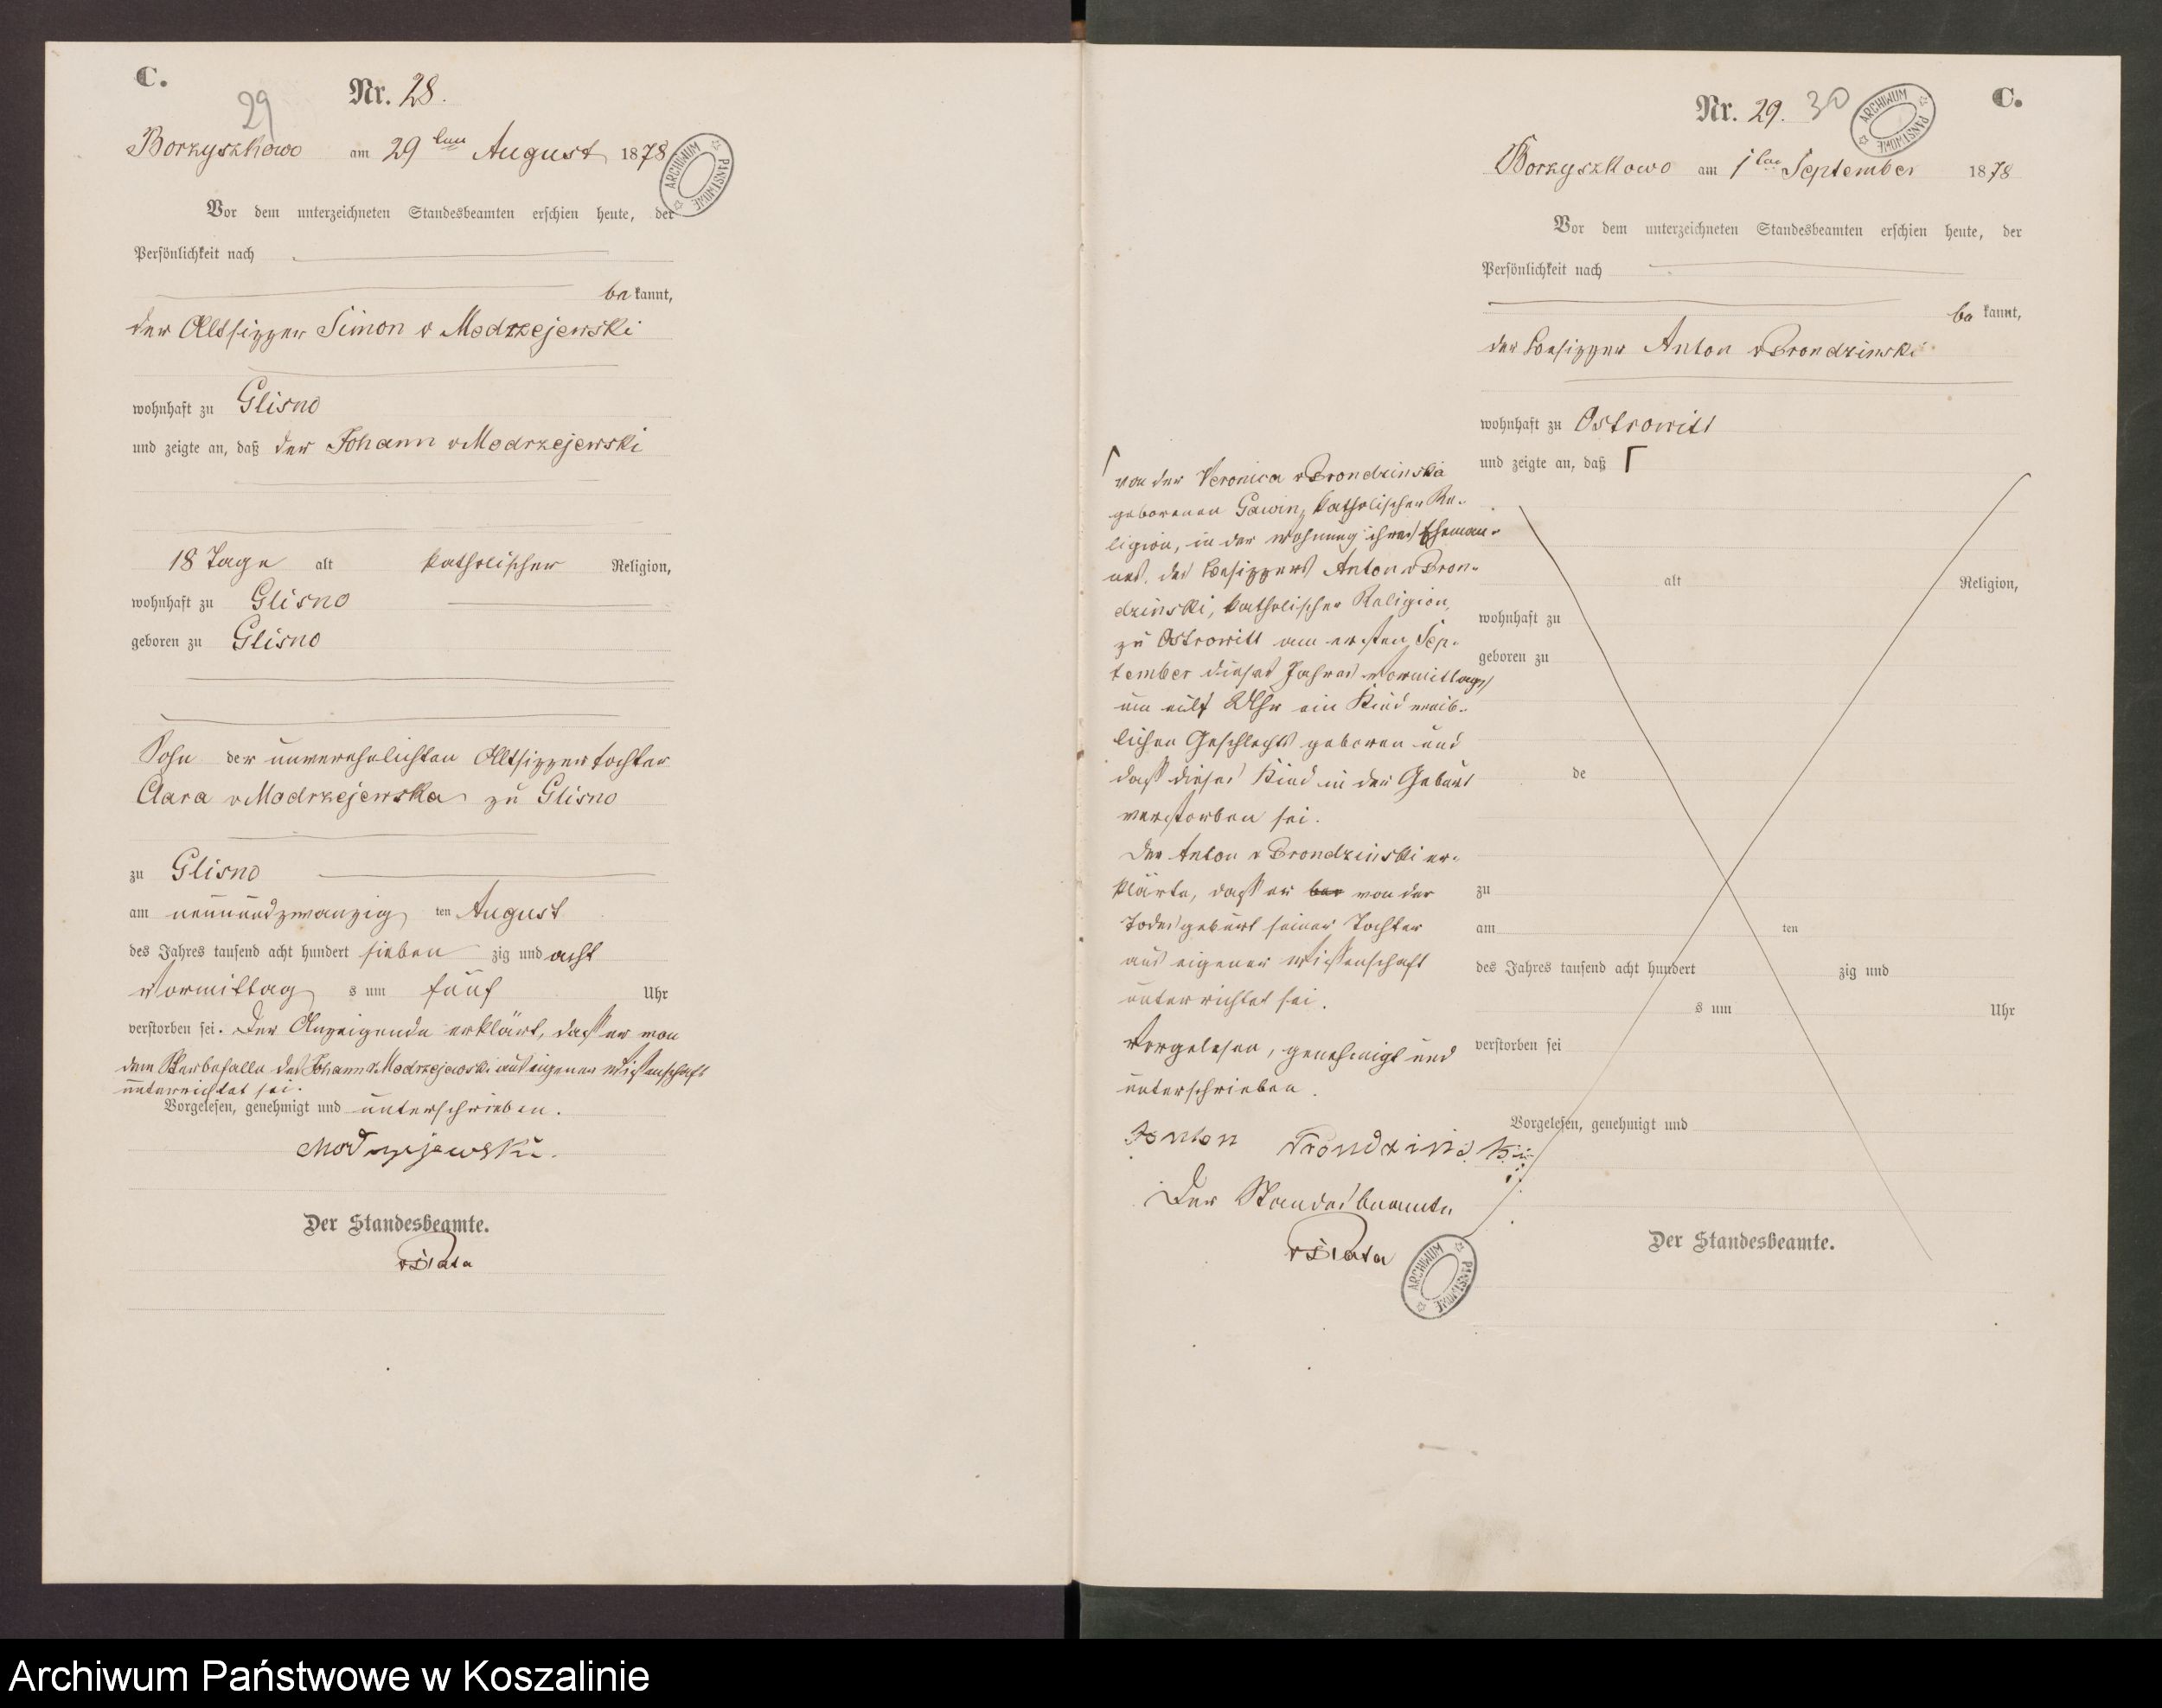 C.
29
Nr. 28.
Borzyszkowo am 29ten August 1878
ARCHIWUM PAŃSTWOWE
Vor dem unterzeichneten Standesbeamten erschien heute, der
Persönlichkeit nach
bekannt,
der Altsitzer Simon v Modrzejewski
wohnhaft zu Glisno
und zeigte an, daß der Johann v Modrzejewski
18 Tage alt katholischer Religion,
wohnhaft zu Glisno
geboren zu Glisno
Sohn der unverehelichten Altsitzertochter
Clara v Modrzejewska zu Glisno
zu Glisno
am neunundzwanzigten August
des Jahres tausend acht hundert siebenzig und acht
Vormittags um fünf Uhr
verstorben sei. Der Anzeigende erklärt, daß er von
dem Sterbefalle des Johann v. Modrzejewski aus eigener Wissenschaft
unterrichtet sei.
Vorgelesen, genehmigt und unterschrieben.
Modrzejewski.
Der Standesbeamte.
C.
Nr. 29. 30
ARCHIWUM PAŃSTWOWE
Borzyszkowo am 1ten September 1878
Vor dem unterzeichneten Standesbeamten erschien heute, der
Persönlichkeit nach
bekannt,
der Besitzer Anton v Trondzinski
wohnhaft zu Ostrowitt
und zeigte an, daß Γ
Γ von der Veronica v Trondzinska
geborenen Gawin, katholischer Re-
ligion, in der Wohnung ihres Eheman-
nes, des Besitzers Anton v Tron-
dzinski, katholischer Religion,
zu Ostrowitt am ersten Sep-
tember dieses Jahres Vormittags
um eilf Uhr ein Kind weib-
lichen Geschlechts geboren und
daß dieses Kind in der Geburt
verstorben sei.
Der Anton v Trondzinski er-
klärte, daß er von der
Todesgeburt seiner Tochter
aus eigener Wissenschaft
unterrichtet sei.
Vorgelesen, genehmigt und
unterschrieben.
Anton Trondzinski
Der Standesbeamte
ARCHIWUM PAŃSTWOWE
alt Religion,
wohnhaft zu
geboren zu
de
zu
am ten
des Jahres tausend acht hundert zig und
s um Uhr
verstorben sei
Vorgelesen, genehmigt und
Der Standesbeamte.
Archiwum Państwowe w Koszalinie